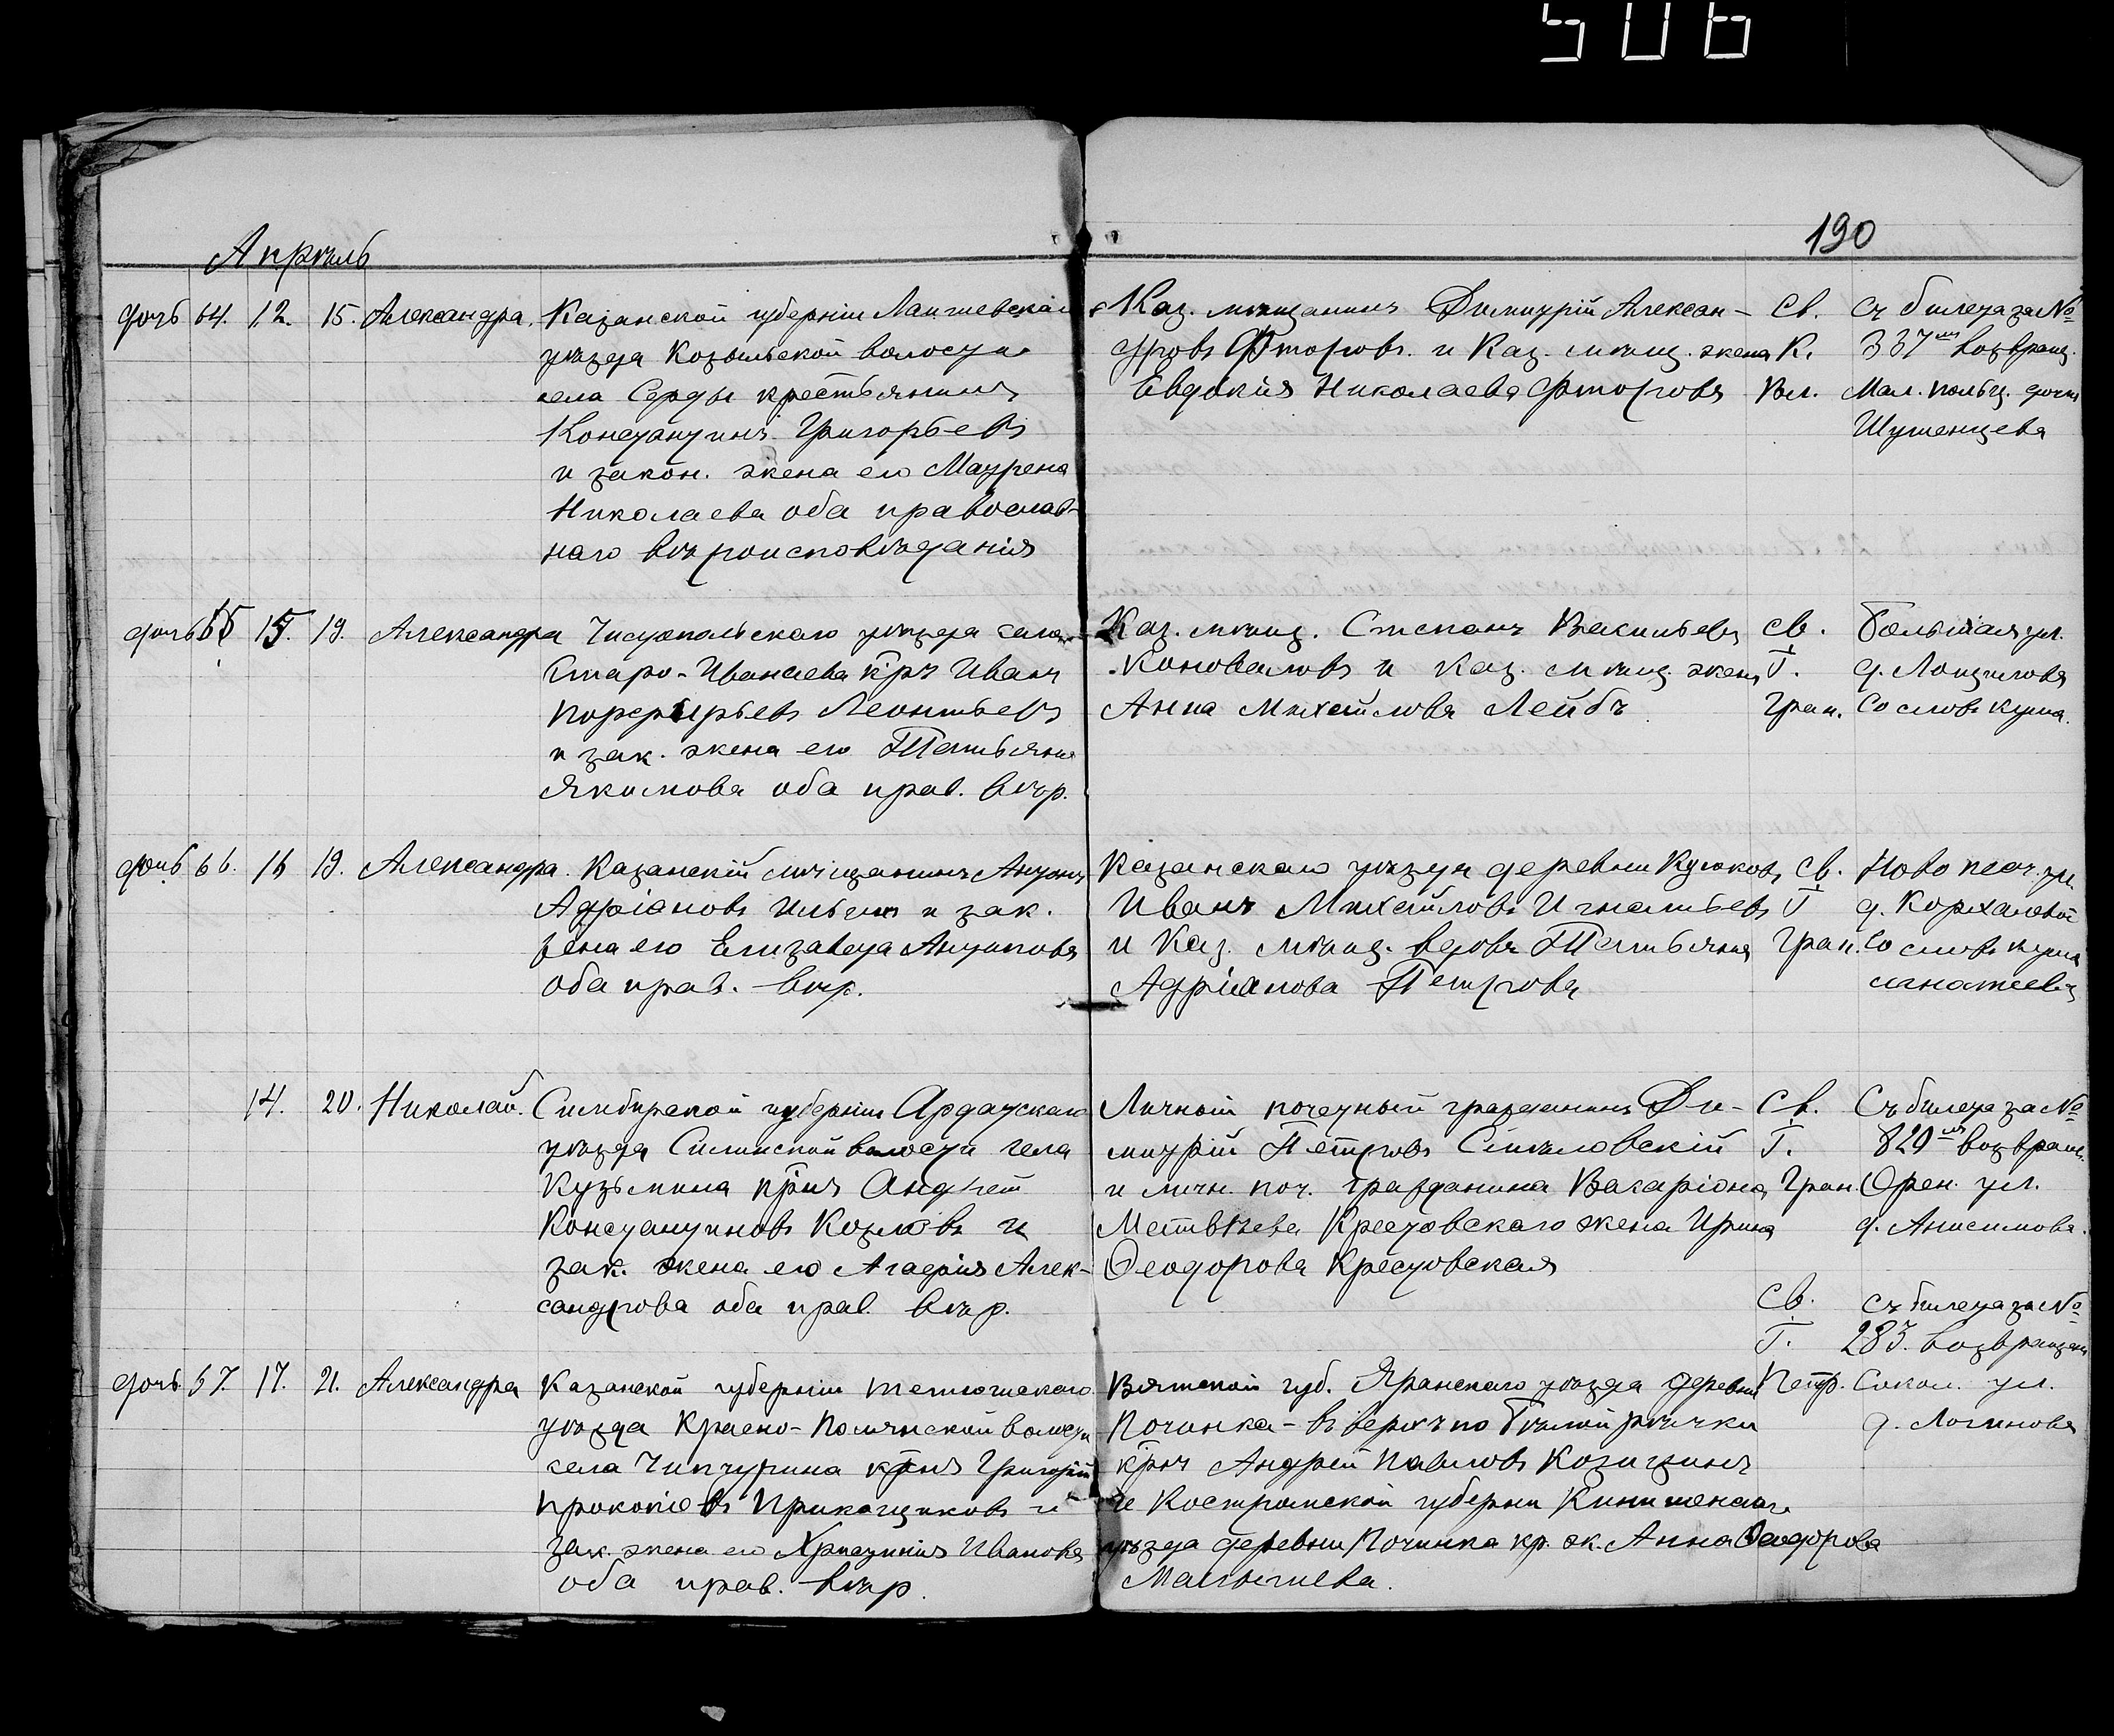 506
190
Апрѣль
дочь 64. 12. 15. Александра. Казанской губерніи Лаишевскаго
уѣзда Козыльской волости
села Серды крестьянинъ
Константинъ Григорьевъ
и закон. жена его Матрена
Николаева оба православ-
наго вѣроисповѣданія
Каз. мѣщанинъ Димитрій Алексан-
дровъ Фторовъ. и Каз. мѣщ. жена
Евдокія Николаева Фторова
Св.
К.
Вл.
Съ билета за №
337 возвращ.
Мал. дочки
дочь 65 15. 19. Александра Чистопольскаго уѣзда села
Старо-Иванаева крнъ Иванъ
Порфирьевъ Леонтьевъ
и зак. жена его Татьяна
Якимова оба прав. вѣр.
Каз. мѣщ. Степанъ Васильевъ
Коноваловъ и Каз. мѣщ. жена
Анна Михайлова Лейбъ
св.
Т.
Гран.
Большая ул.
д. Лощилова
Со словъ кума.
дочь 66. 16 19. Александра. Казанскій мѣщанинъ Антонъ
Адріановъ Ильинъ и зак.
жена его Елизавета Антипова
оба прав. вѣр.
Казанскаго уѣзда деревни
Иванъ Михайловъ Игнатьевъ
и Каз. мѣщ. вдова Татьяна
Адріанова Петрова
св.
Т
Гран.
Ново ул.
д.
Со словъ кума
14. 20. Николай. Симбирской губерніи Ардатскаго
уѣзда Силинской волости села
Кузьмина крнъ Андрей
Константиновъ Козловъ и
зак. жена его Агафія Алек-
сандрова оба прав. вѣр.
Личный почетный гражданинъ Ди-
митрій Петровъ
и личн. поч. гражданина Вакаріона
Матвѣева Крестовскаго жена Ирина
Ѳеодорова Крестовская
Св.
Т.
Гран.
Съ билета за №
820 возвращ.
Орен. ул.
д. Анисимова.
дочь 67. 17. 21. Александра Казанской губерніи Тетюшскаго
уѣзда Красно-Полянской волости
села Чинчурина крнъ Григорій
Прокопіевъ Прикащиковъ и
зак. жена его Христинія Иванова
оба прав. вѣр.
Вятской губ. Яранскаго уѣзда деревни
Починка - въ верхъ по Бѣлой рѣчки
крнъ Андрей Павловъ Козицынъ
и Костромской губерни Кинишенскаго
уѣзда деревни Починка кр. ж. Анна Ѳеодорова
Малышева.
Св.
Т.
Петр.
Съ билета за №
283. возвращен
Сокол. ул.
д. Логинова